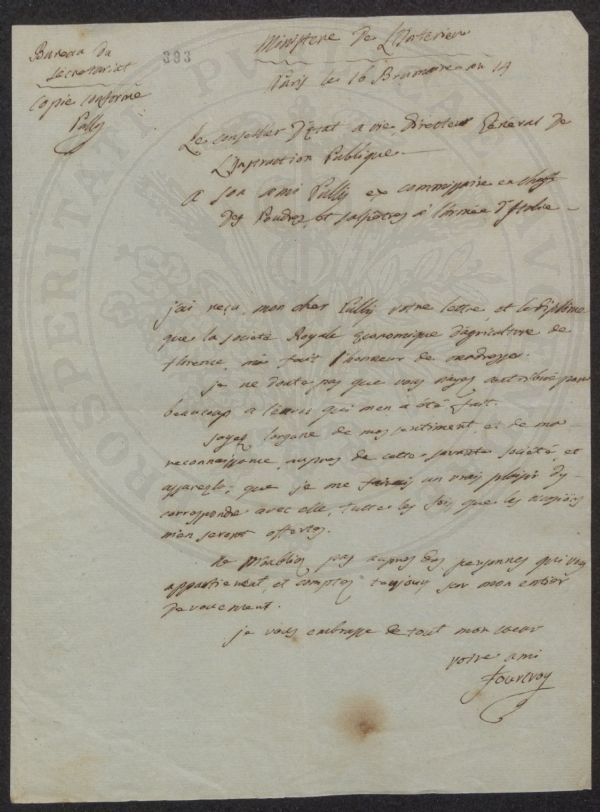 Bureau du
Secretariat
Copie conforme
Pully
393
Ministere De L'Interieur
Paris le 16 Brumaire an 13
Le conseiller D'Etat a vie Directeur General de
L'Instruction Publique
a son ami Pully ex commissaire en chef
des Poudres et salpetres a l'armée d'Italie
j'ai reçu, mon cher Pully votre lettre, et le Diplôme
que la société Royale Economique d'agriculture de
florence, m'a fait l'honneur de m'adresser.
je ne doute pas que vous n'ayez contribué pour
beaucoup a l'envoi qui m'en a été fait.
soyez l'organe de mes sentiment, et de ma
reconnaissance, aupres de cette savante société, et
que je me ferais un vrai plaisir d'y
correspondre avec elle, toutes les fois que les occasions
m'en seront offertes.
ne m'oubliez pas aupres des personnes qui vous
appartienent, et comptez toujours sur mon entier
devouement.
je vous embrasse de tout mon coeur
votre ami
Fourcroy
PROSPERITATI PUBLICAE AUGENDAE